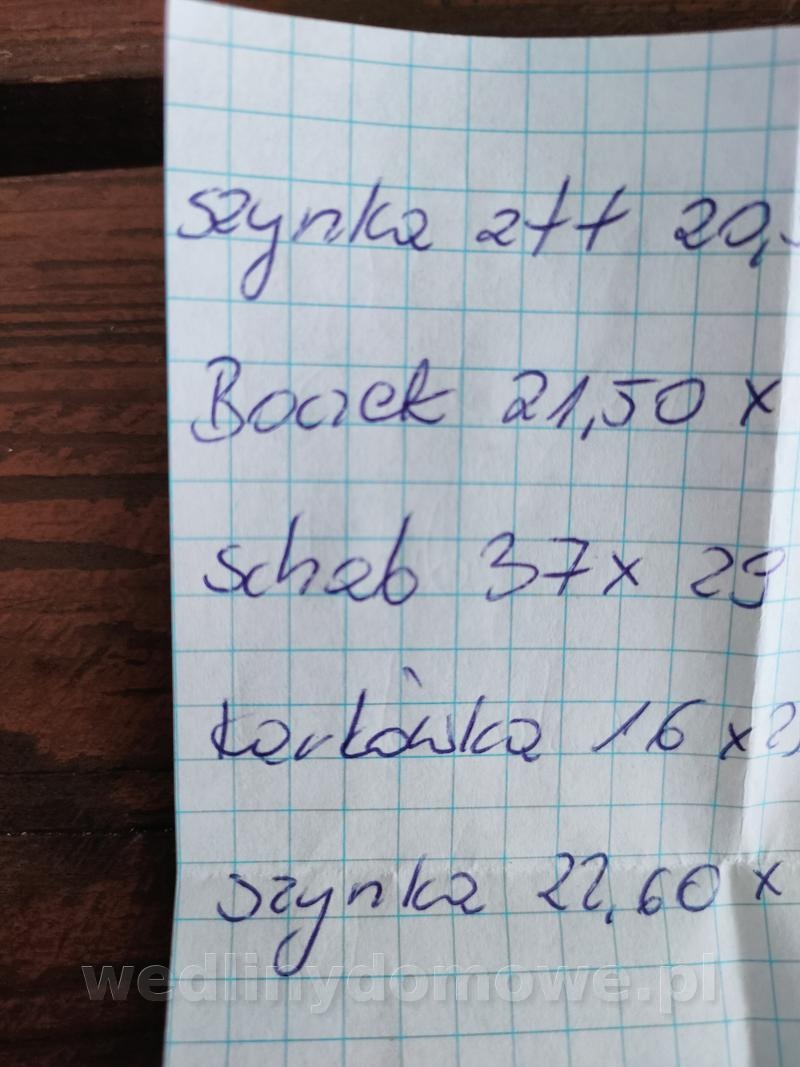 Szynka z tł 20,
Boczek 21,50 x
Schab 37 x 29
karkówka 16 x
Szynka 22,60 x
wedlinydomowe.pl